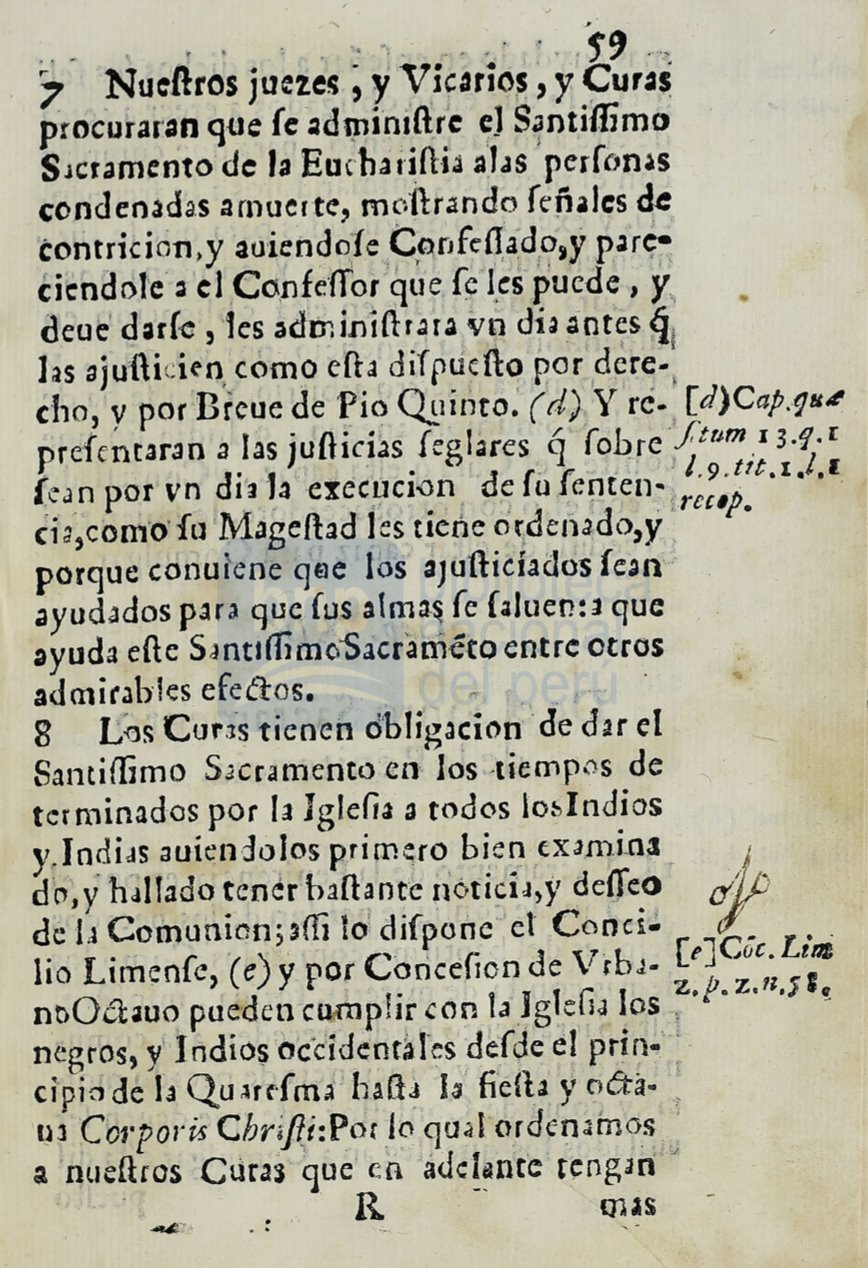 59
7 Nueſtros juezes, y Vicarios, y Curas
procuraran que ſe adminiſtre el Santiſſimo
Sacramento de la Euchariſtia alas perſonas
condenadas amuerte, moſtrando ſeñales de
contricion, y auiendoſe Confeſſado, y pare-
ciendole a el Confeſſor que ſe les puede, y
deue darſe, les adminiſtrara vn dia antes q́
las ajuſticien como eſta diſpueſto por dere-
cho, y por Breue de Pio Quinto. (d) Y re-
preſentaran a las juſticias ſeglares q́ ſobre
ſean por vn dia la execucion de ſu ſenten-
cia, como ſu Mageſtad les tiene ordenado, y
porque conuiene que los ajuſticiados ſean
ayudados para que ſus almas ſe ſaluen: a que
ayuda eſte Santiſſimo Sacraméto entre otros
admirables efectos.
[d) Cap. quæ
ſitum 13. q. 1
l. 9. tit. 1. l. 1
recop.
8 Los Curas tienen obligacion de dar el
Santiſſimo Sacramento en los tiempos de
terminados por la Igleſia a todos los Indios
y Indias auiendolos primero bien examina
do, y hallado tener baſtante noticia, y deſſeo
de la Comunion; aſſi lo diſpone el Conci-
lio Limenſe, (e) y por Conceſion de Vrba-
no Octauo pueden cumplir con la Igleſia los
negros, y Indios occidentales deſde el prin-
cipio de la Quareſma haſta la fieſta y octa-
ua Corporis Chriſti: Por lo qual ordenamos
a nueſtros Curas que en adelante tengan
[e] Cōc. Lim
2. p. 2. n. 58.
R mas
del perú